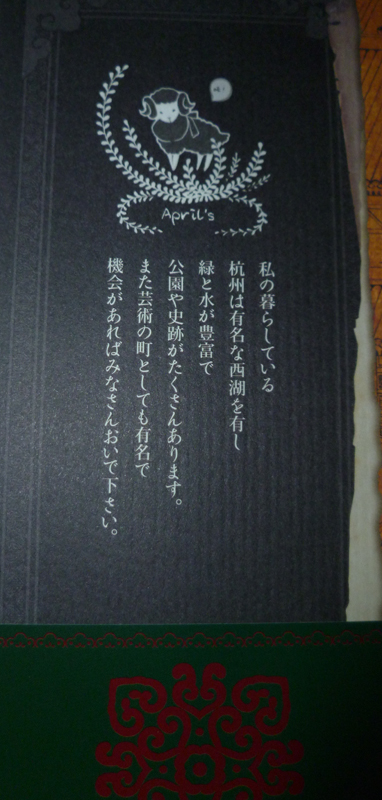 April's
私の暮らしている
杭州は有名な西湖を有し
緑と水が豊富で
公園や史跡がたくさんあります。
また芸術の町としても有名で
機会があればみなさんおいで下さい。